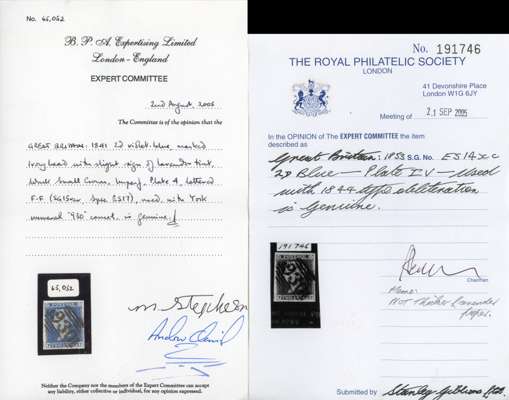 No. 65,052
B. P. A. Expertising Limited
London - England
EXPERT COMMITTEE
2nd August, 2005
The Committee is of the opinion that the
GREAT BRITAIN: 1841 2d violet-blue, marked
Ivory head with slight sign of lavender tint,
Small Crown, Imperf, Plate 4, lettered
F.F. used with York
numeral '930' cancel, is genuine.
65,052
M Stephens
Andrew Claridge
Neither the Company nor the members of the Expert Committee can accept
any liability, either collective or individual, for any opinion expressed.
No. 191746
THE ROYAL PHILATELIC SOCIETY
LONDON
41 Devonshire Place
London W1G 6JY
Meeting of 21 SEP 2005
In the OPINION of The EXPERT COMMITTEE the item
described as
Great Britain: 1853 S.G. No. ES14
2d Blue - Plate IV - used
with 1844 type obliteration
is Genuine.
191746
Chairman
Please:
Not Thicker Lavender
Paper.
Submitted by Stanley Gibbons Ltd.